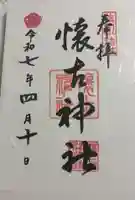 奉拝
懐古神社
令和七年四月十日